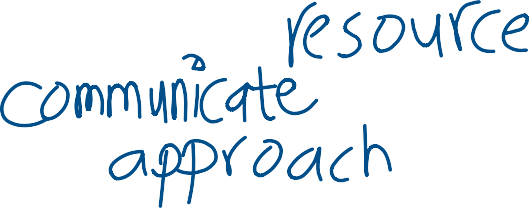 resource
communicate
approach